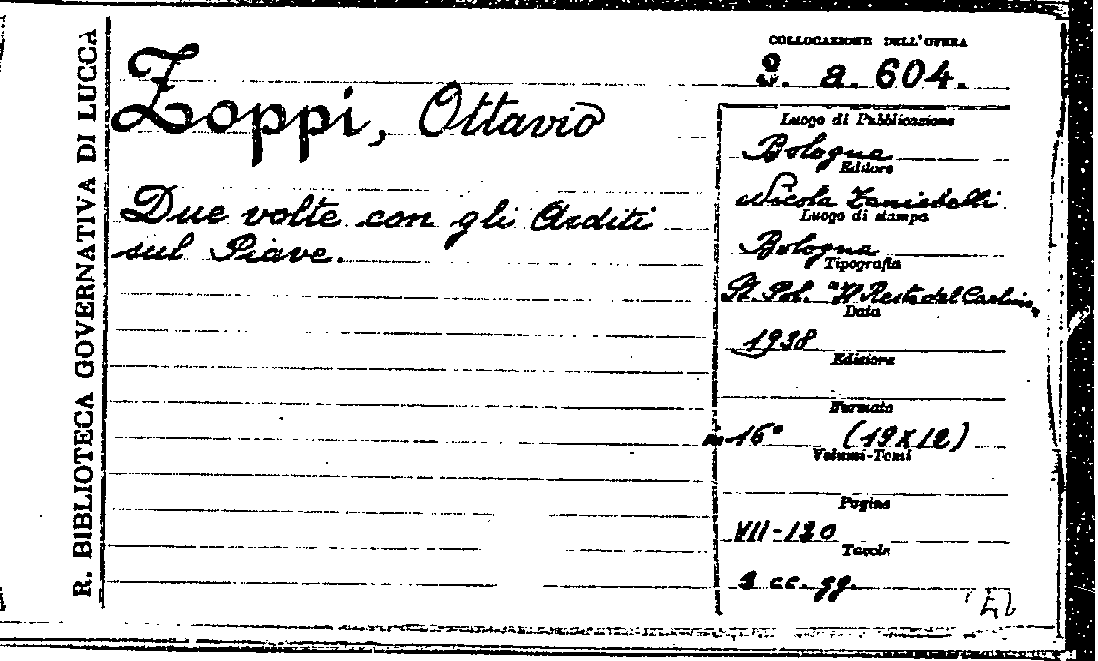 R. BIBLIOTECA GOVERNATIVA DI LUCCA
COLLOCAZIONE DELL'OPERA
a. 604.
Zoppi, Ottavio
Due volte con gli Arditi
sul Piave.
Luogo di Pubblicazione
Bologna
Editore
Nicola Zanichelli
Luogo di stampa
Bologna
Tipografia
St. Pol. "Il Resto del Carlino"
Data
1938
Edizione
Formato
in-16° (19x12)
Volumi-Tomi
Pagine
VII-120
Tavole
cc. gg.